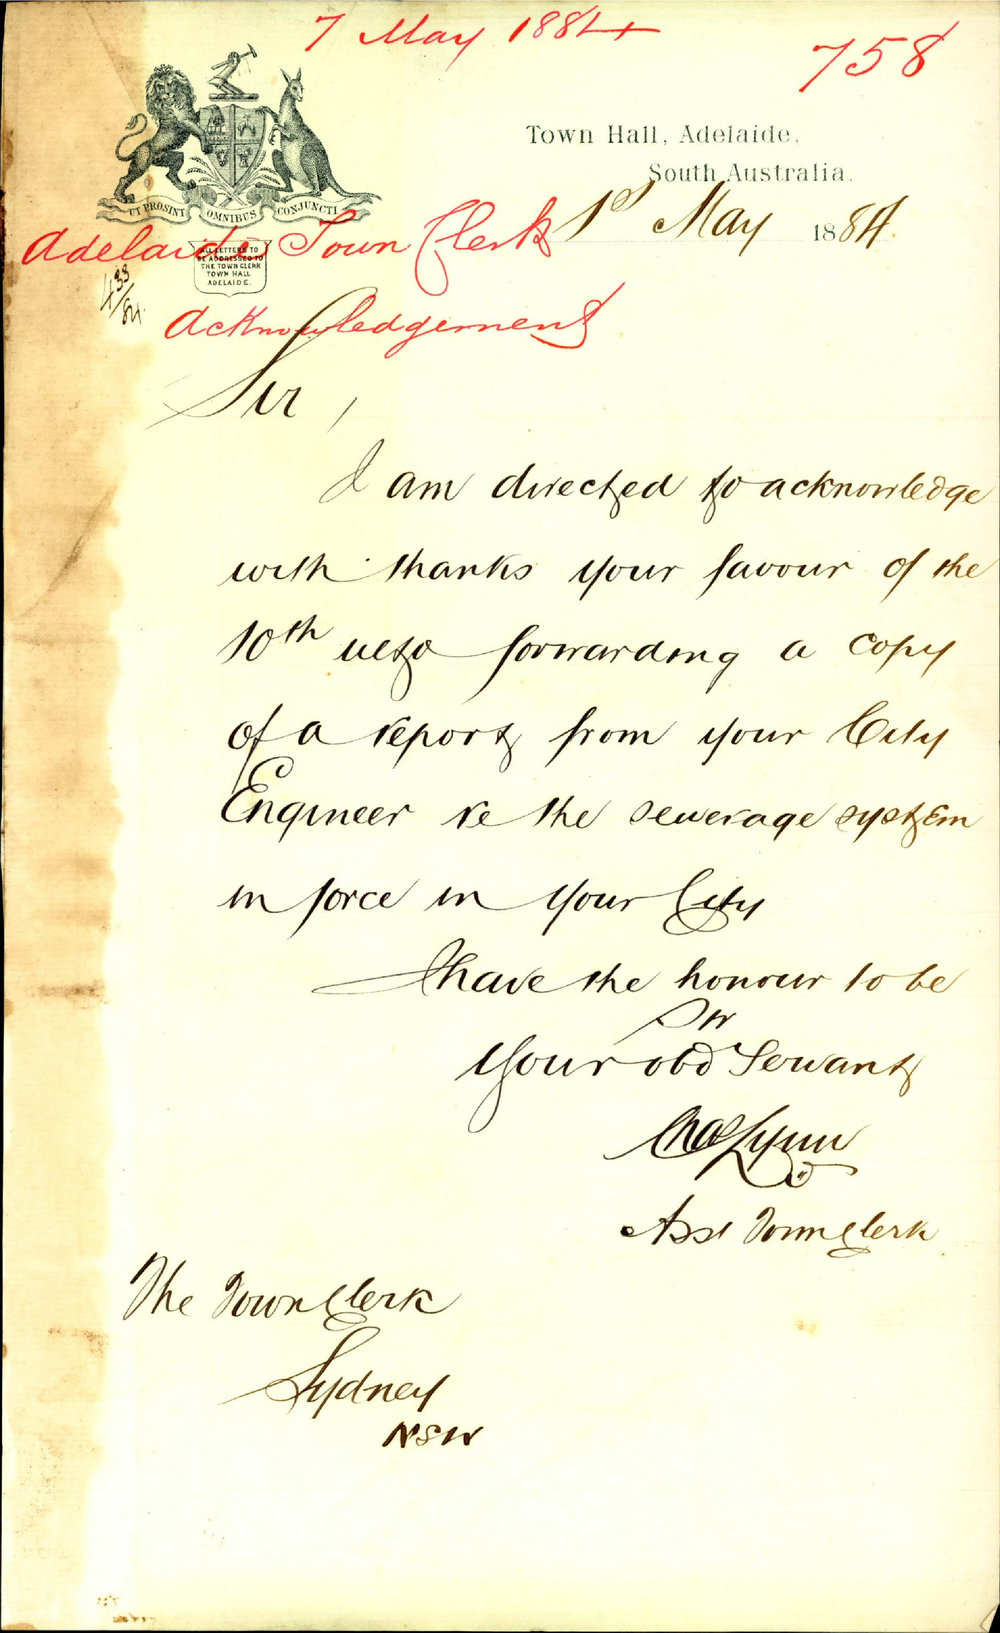 7 May 1884
758
UT PROSINT OMNIBUS CONJUNCTI
Town Hall, Adelaide,
South Australia.
1st May 1884.
Adelaide Town Clerk
ALL LETTERS TO
BE ADDRESSED TO
THE TOWN CLERK
TOWN HALL
ADELAIDE.
433/84
Acknowledgement
Sir,
I am directed to acknowledge
with thanks your favour of the
10th ulto forwarding a copy
of a report from your City
Engineer re the sewerage system
in force in your City
I have the honour to be
Sir
Your obd Servant
Chas Lynn
Asst Town Clerk
The Town Clerk
Sydney
NSW